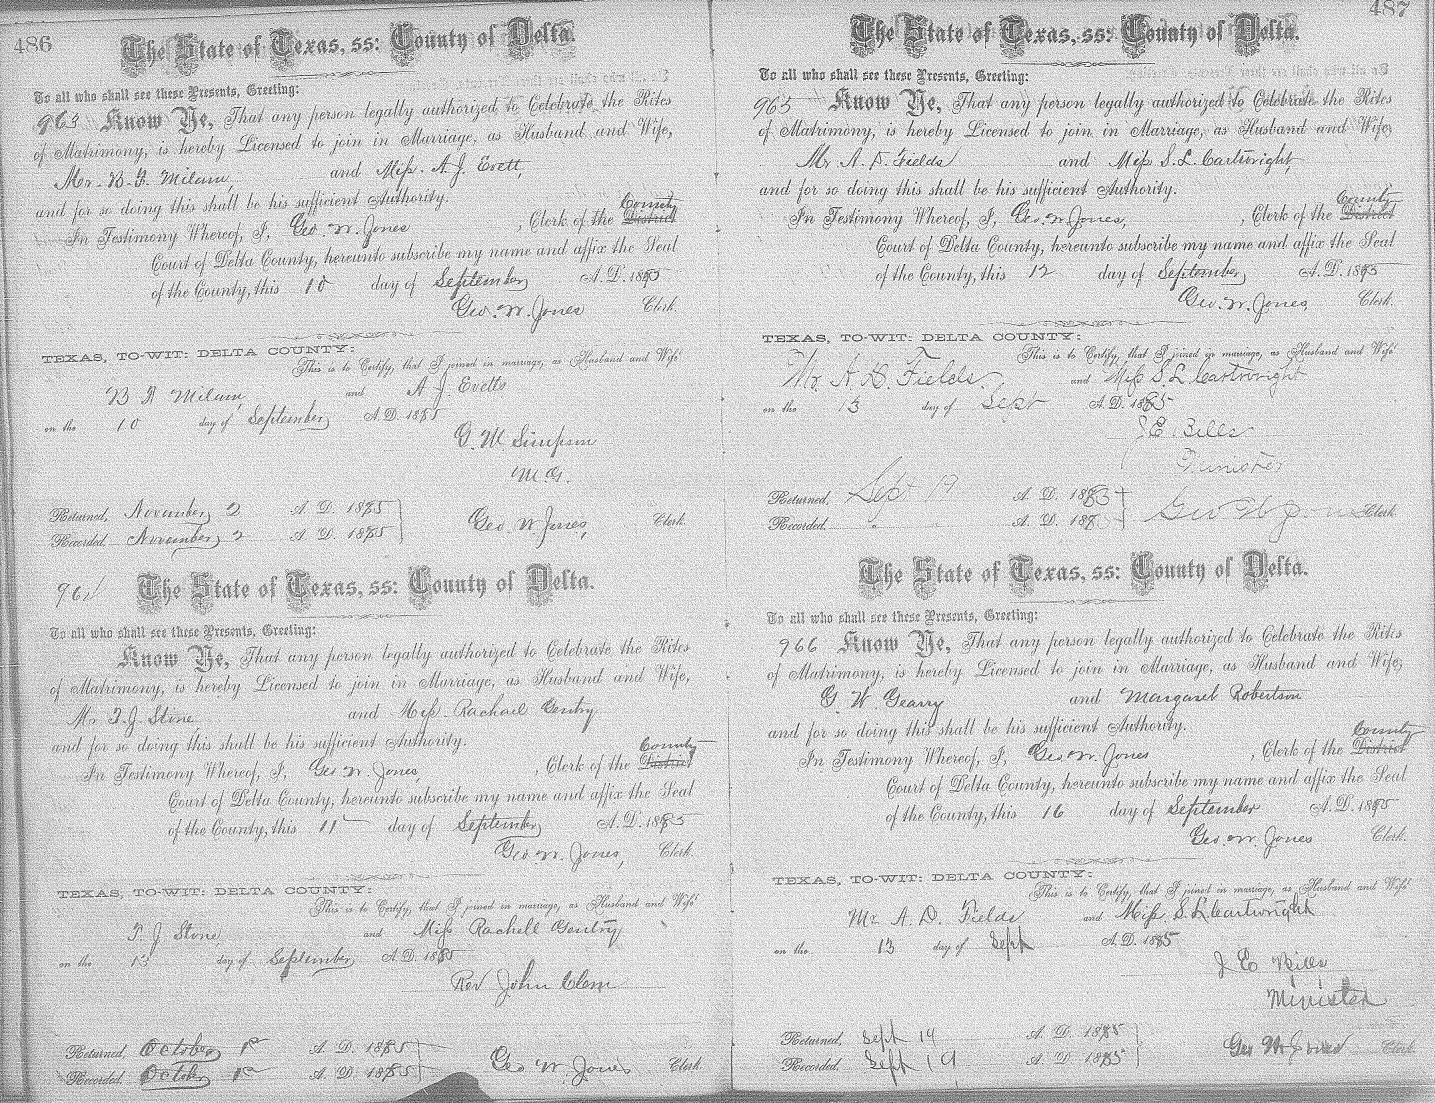 486
The State of Texas, ss: County of Delta.
To all who shall see these Presents, Greeting:
963 Know Ye, That any person legally authorized to Celebrate the Rites
of Matrimony, is hereby Licensed to join in Marriage, as Husband and Wife,
Mr. B. F. Milam, and Miss. A. J. Evett,
and for so doing this shall be his sufficient Authority.
In Testimony Whereof, I, Geo W. Jones, Clerk of the District County
Court of Delta County, hereunto subscribe my name and affix the Seal
of the County, this 10 day of September A.D. 1885
Geo. W. Jones Clerk.
TEXAS, TO-WIT: DELTA COUNTY:
This is to Certify, that I joined in marriage, as Husband and Wife
Milam, and A J. Evetts
on the 10 day of September A.D. 1885
G. M. Simpson
M. G.
Returned, November 2 A. D. 1885
Recorded. November 2 A. D. 1885
Geo W Jones, Clerk.
The State of Texas, ss: County of Delta.
To all who shall see these Presents, Greeting:
Know Ye, That any person legally authorized to Celebrate the Rites
of Matrimony, is hereby Licensed to join in Marriage, as Husband and Wife,
Mr T. J. Stone and Miss. Rachael Gentry
and for so doing this shall be his sufficient Authority.
In Testimony Whereof, I, Geo W. Jones, , Clerk of the District County
Court of Delta County, hereunto subscribe my name and affix the Seal
of the County, this 11 day of September A.D. 1885
Geo. W. Jones, Clerk.
TEXAS, TO-WIT: DELTA COUNTY:
This is to Certify, that I joined in marriage, as Husband and Wife
T. J. Stone and Miss Rachell Gentry
on the 13 day of September A.D. 1885
Rev John Clem
Returned, October 1st A. D. 1885
Recorded. October 1st A. D. 1885
Geo W. Jones Clerk.
487
The State of Texas, ss: County of Delta.
To all who shall see these Presents, Greeting:
965 Know Ye, That any person legally authorized to Celebrate the Rites
of Matrimony, is hereby Licensed to join in Marriage, as Husband and Wife,
Mr A. D. Fields and Miss S. L. Cartwright,
and for so doing this shall be his sufficient Authority.
In Testimony Whereof, I, Geo. W. Jones, , Clerk of the District County
Court of Delta County, hereunto subscribe my name and affix the Seal
of the County, this 12 day of September, A.D. 1885
Geo. W. Jones, Clerk.
TEXAS, TO-WIT: DELTA COUNTY:
This is to Certify, that I joined in marriage, as Husband and Wife
Mr. A. D. Fields. and Miss S. L Cartwright
on the 13 day of Sept A.D. 1885
J E. Bills
Minister
Returned, Sept 19 A. D. 1885
Recorded. " " A. D. 188
Geo W Jones Clerk
The State of Texas, ss: County of Delta.
To all who shall see these Presents, Greeting:
966 Know Ye, That any person legally authorized to Celebrate the Rites
of Matrimony, is hereby Licensed to join in Marriage, as Husband and Wife,
G. W. Gearry and Margaret Robertson
and for so doing this shall be his sufficient Authority.
In Testimony Whereof, I, Geo. W. Jones , Clerk of the District County
Court of Delta County, hereunto subscribe my name and affix the Seal
of the County, this 16 day of September A.D. 1885
Geo. W. Jones Clerk.
TEXAS, TO-WIT: DELTA COUNTY:
This is to Certify, that I joined in marriage, as Husband and Wife
Mr. A. D. Fields and Miss S. L. Cartwright
on the 13 day of Sept A.D. 1885
J E Bills
Minister
Returned, Sept 19 A. D. 1885
Recorded. Sept 19 A. D. 1885
Geo W Jones Clerk.